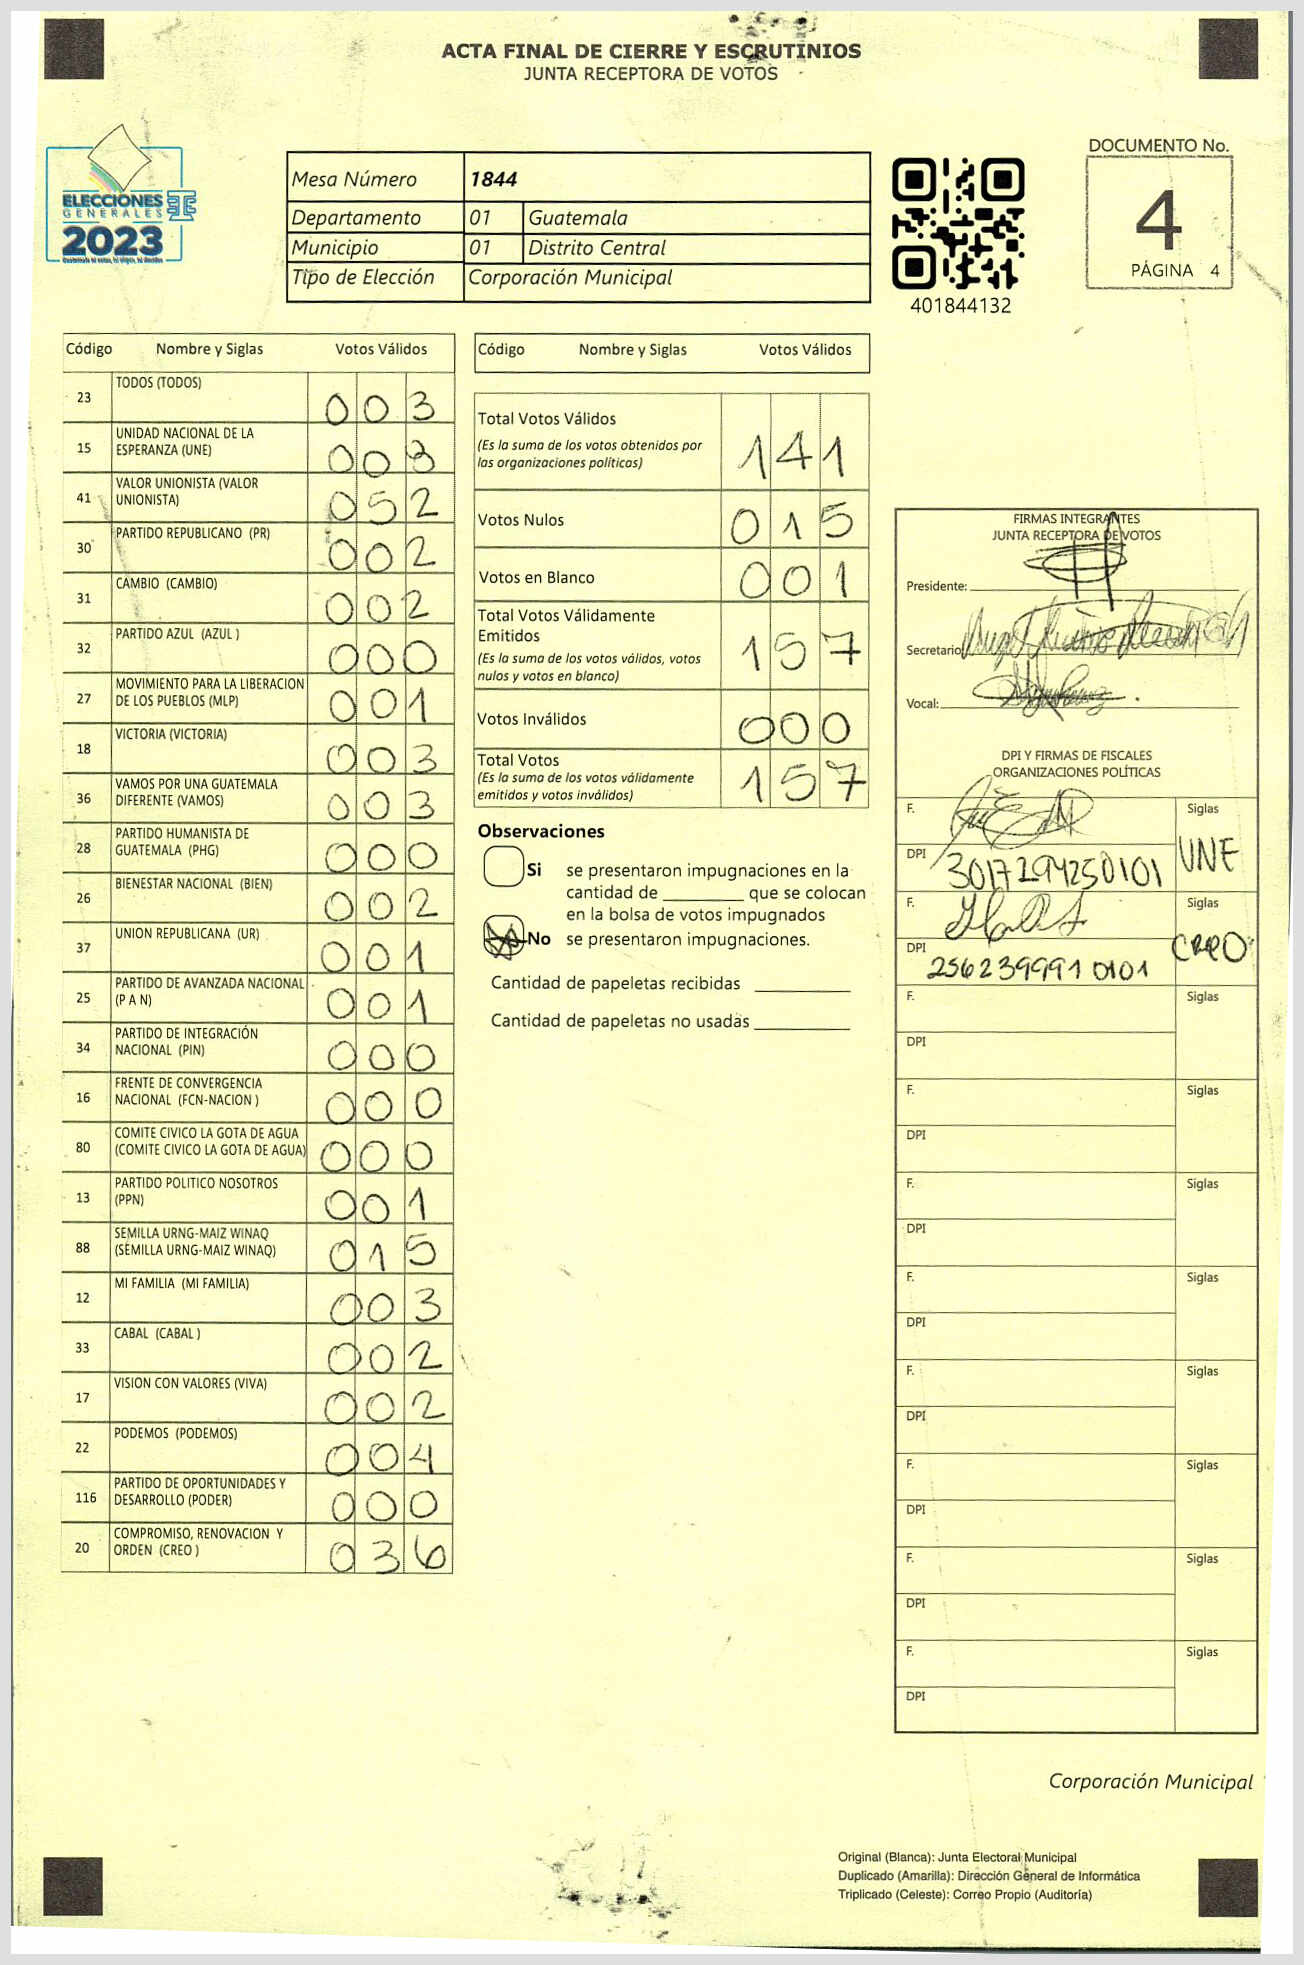 ACTA FINAL DE CIERRE Y ESCRUTINIOS
JUNTA RECEPTORA DE VOTOS
ELECCIONES
GENERALES
2023
Mesa Número 1844
Departamento 01 Guatemala
Municipio 01 Distrito Central
Tipo de Elección Corporación Municipal
401844132
DOCUMENTO No.
4
PÁGINA 4
Código Nombre y Siglas Votos Válidos
23 TODOS (TODOS) 003
15 UNIDAD NACIONAL DE LA ESPERANZA (UNE) 008
41 VALOR UNIONISTA (VALOR UNIONISTA) 052
30 PARTIDO REPUBLICANO (PR) 002
31 CAMBIO (CAMBIO) 002
32 PARTIDO AZUL (AZUL ) 000
27 MOVIMIENTO PARA LA LIBERACION DE LOS PUEBLOS (MLP) 001
18 VICTORIA (VICTORIA) 003
36 VAMOS POR UNA GUATEMALA DIFERENTE (VAMOS) 003
28 PARTIDO HUMANISTA DE GUATEMALA (PHG) 000
26 BIENESTAR NACIONAL (BIEN) 002
37 UNION REPUBLICANA (UR) 001
25 PARTIDO DE AVANZADA NACIONAL (P A N) 001
34 PARTIDO DE INTEGRACIÓN NACIONAL (PIN) 000
16 FRENTE DE CONVERGENCIA NACIONAL (FCN-NACION ) 000
80 COMITE CIVICO LA GOTA DE AGUA (COMITE CIVICO LA GOTA DE AGUA) 000
13 PARTIDO POLITICO NOSOTROS (PPN) 001
88 SEMILLA URNG-MAIZ WINAQ (SEMILLA URNG-MAIZ WINAQ) 015
12 MI FAMILIA (MI FAMILIA) 003
33 CABAL (CABAL ) 002
17 VISION CON VALORES (VIVA) 002
22 PODEMOS (PODEMOS) 004
116 PARTIDO DE OPORTUNIDADES Y DESARROLLO (PODER) 000
20 COMPROMISO, RENOVACION Y ORDEN (CREO ) 036
Código Nombre y Siglas Votos Válidos
Total Votos Válidos 141
(Es la suma de los votos obtenidos por
las organizaciones políticas)
Votos Nulos 015
Votos en Blanco 001
Total Votos Válidamente
Emitidos 157
(Es la suma de los votos válidos, votos
nulos y votos en blanco)
Votos Inválidos 000
Total Votos 157
(Es la suma de los votos válidamente
emitidos y votos inválidos)
Observaciones
Si se presentaron impugnaciones en la
cantidad de ________ que se colocan
en la bolsa de votos impugnados
No se presentaron impugnaciones.
Cantidad de papeletas recibidas
Cantidad de papeletas no usadas
FIRMAS INTEGRANTES
JUNTA RECEPTORA DE VOTOS
Presidente:
Secretario:
Vocal:
DPI Y FIRMAS DE FISCALES
ORGANIZACIONES POLÍTICAS
F. Siglas
DPI 3017294250101 UNE
F. Siglas
DPI 2562399910101 CREO
F. Siglas
DPI
F. Siglas
DPI
F. Siglas
DPI
F. Siglas
DPI
F. Siglas
DPI
F. Siglas
DPI
F. Siglas
DPI
F. Siglas
DPI
Corporación Municipal
Original (Blanca): Junta Electoral Municipal
Duplicado (Amarilla): Dirección General de Informática
Triplicado (Celeste): Correo Propio (Auditoría)